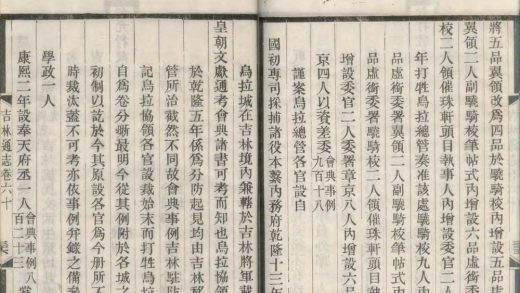 將五品翼領改為四品於驍騎校內增設五品
翼領二人驍騎校筆帖式內增設六品虛銜
校二人領催珠軒頭目執事人內增設委官二
年打牲烏拉總管奏准該處驍騎校九人內
品虛銜委署翼領二人副驍騎校筆帖式內
品虛銜委署驍騎校二人領催珠軒頭目
增設委官二人委署章京八人內增設六品
京四人以資差委會典事例九百十八
謹案烏拉總管各官設自
國初專司採捕諸役本繫內務府乾隆十三年
烏拉城在吉林境內兼轄於吉林將軍載
皇朝文獻通考會典諸書可考而知也烏拉協領
於乾隆五年係為分防起見均由吉林移
管所治截然不同故會典事例吉林駐防
記烏拉協領各官設裁始末而打牲烏
自為卷分晰最明今從其例附於各城之
初制以訖於今其原設各官為今册所
時裁汰蓋不可考亦依事例弁之備考
學政一人
康熙二年設奉天府丞一人會典事例八百二十三掌
吉林通志卷六十